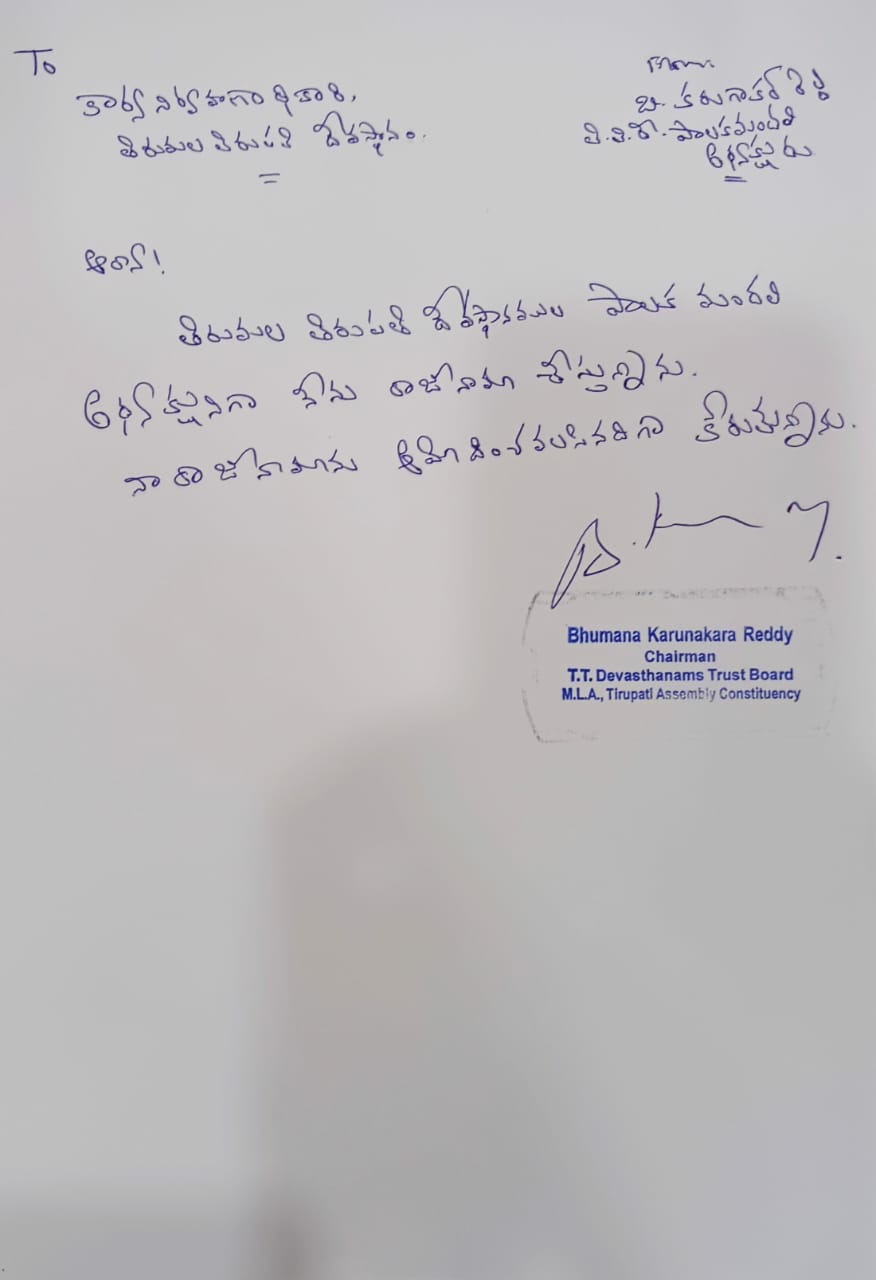 To
కార్యనిర్వహణాధికారి,
తిరుమల తిరుపతి దేవస్థానం.
From
బి. కరుణాకర్ రెడ్డి
తి.తి.దే. పాలకమండలి
అధ్యక్షుడు
ఆర్యా!
తిరుమల తిరుపతి దేవస్థానముల పాలక మండలి
అధ్యక్షునిగా నేను రాజీనామా చేస్తున్నాను.
నా రాజీనామాను ఆమోదించవలసినదిగా కోరుతున్నాను.
Bhumana Karunakara Reddy
Chairman
T.T. Devasthanams Trust Board
M.L.A., Tirupati Assembly Constituency